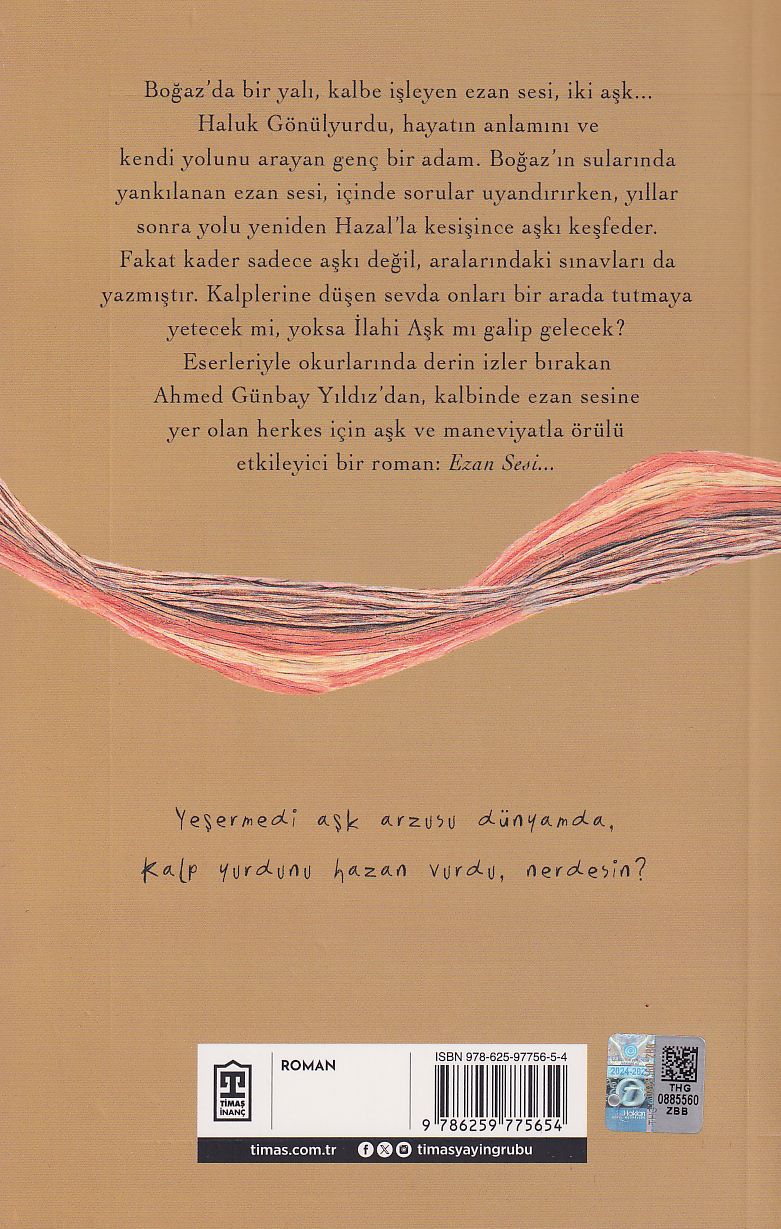 Boğaz’da bir yalı, kalbe işleyen ezan sesi, iki aşk...
Haluk Gönülyurdu, hayatın anlamını ve
kendi yolunu arayan genç bir adam. Boğaz’ın sularında
yankılanan ezan sesi, içinde sorular uyandırırken, yıllar
sonra yolu yeniden Hazal’la kesişince aşkı keşfeder.
Fakat kader sadece aşkı değil, aralarındaki sınavları da
yazmıştır. Kalplerine düşen sevda onları bir arada tutmaya
yetecek mi, yoksa İlahi Aşk mı galip gelecek?
Eserleriyle okurlarında derin izler bırakan
Ahmed Günbay Yıldız’dan, kalbinde ezan sesine
yer olan herkes için aşk ve maneviyatla örülü
etkileyici bir roman: Ezan Sesi...
Yeşermedi aşk arzusu dünyamda,
Kalp yurdunu hazan vurdu, nerdesin?
TİMAŞ
İNANÇ
ROMAN
ISBN 978-625-97756-5-4
9 786259 775654
timas.com.tr
timasyayingrubu
THG
0885560
ZBB